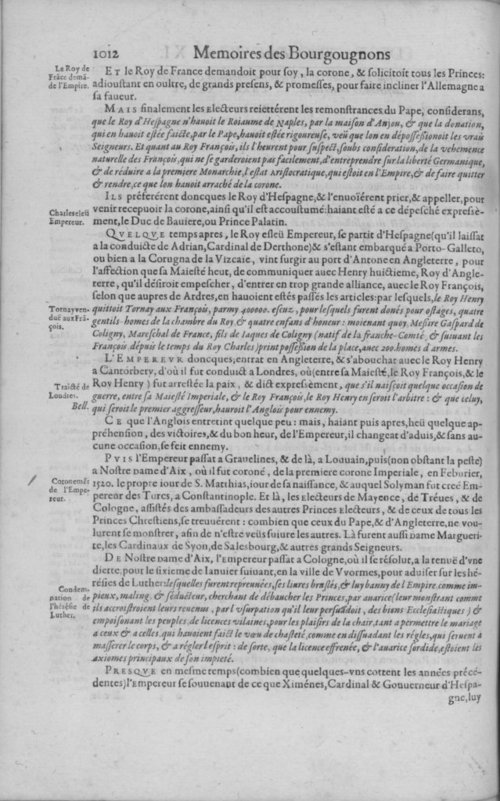 1012 Memoires des Bourgougnons
Le Roy de
Frāce demā-
de l'Empire.
ET le Roy de France demandoit pour soy, la corone, & solicitoit tous les Princes:
adioustant en oultre, de grands presens, & promesses, pour faire incliner l'Allemagne a
sa faueur.
MAIS finalement les Electeurs reiettérent les remonstrances du Pape, considerans,
que le Roy d'Hespagne n'hauoit le Roiaume de Naples, par la maison d'Anjou, & que la donation,
qui en hauoit estée faicte, par le Pape, hauoit estée rigoureuse, veü que lon en dépossessionoit les vrais
Seigneurs. Et quant au Roy François, ils l'heurent pour suspect, soubs consideration, de la vehemence
naturelle des François, qui ne se garderoient pas facilement, d'entreprendre sur la liberté Germanique,
& de réduire a la premiere Monarchie, l'estat Aristocratique, qui estoit en l'Empire, & de faire quitter
& rendre, ce que lon hauoit arraché de la corone.
Charles esleü
Empereur.
ILS préférérent doncques le Roy d'Hespagne, & l'enuoiérent prier, & appeller, pour
venir recepuoir la corone, ainsi qu'il est accoustumé: haiant esté a ce dépesché expresiè-
ment, le Duc de Bauiere, ou Prince Palatin.
QVELQVE temps apres, le Roy esleü Empereur, se partit d'Hespagne (qu'il laissat
a la conduicte de Adrian, Cardinal de Derthone) & s'estant embarqué a Porto-Galleto,
ou bien a la Corugna de la Vizcaie, vint surgir au port d'Antone en Angleterre, pour
l'affection que sa Maiesté heut, de communiquer auec Henry huictieme, Roy d'Angle-
terre, qu'il désiroit empescher, d'entrer en trop grande alliance, auec le Roy François,
selon que aupres de Ardres, en hauoient estés passés les articles: par lesquels, le Roy Henry
Tornay ven-
due aux Frā-
çois.
quittoit Tornay aux François, parmy 400000. escuz, pour lesquels furent donés pour ostages, quatre
gentils-homes de la chambre du Roy & quatre enfans d'honeur: moienant quoy, Mesire Gaspard de
Coligny, Mareschal de France, fils de Iaques de Coligny (natif de la franche-Comté & suiuant les
François dépuis le temps du Roy Charles) print possession de la place, auec 200. homes d'armes.
L'EMPEREVR doncques, entrat en Angleterre, & s'abouchat auec le Roy Henry
a Cantorbery, d'où il fut conduict a Londres, où (entre sa Maiesté, le Roy François, & le
Traicté de
Londres.
Bell.
Roy Henry) fut arrestée la paix, & dict expresièment, que s'il naissoit quelque occasion de
guerre, entre sa Maiesté Imperiale, & le Roy François, le Roy Henry en seroit l'arbitre: & que celuy,
qui seroit le premier aggresseur, hauroit l'Anglois pour ennemy.
CE que l'Anglois entretint quelque peu: mais, haiant puis apres, heü quelque ap-
préhension, des victoires, & du bon heur, de l'Empereur, il changeat d'aduis, & sans au-
cune occasion, se feit ennemy.
PVIS l'Empereur passat a Grauelines, & de là, a Louuain, puis (non obstant la peste)
a Nostre Dame d'Aix, où il fut coroné, de la premiere corone Imperiale, en Feburier,
Coronemēt
de l'Empe-
reur.
1520. le propre iour de S. Matthias, iour de sa naissance, & auquel Solyman fut creé Em-
pereur des Turcs, a Constantinople. Et là, les Electeurs de Mayence, de Tréues, & de
Cologne, assistés des ambassadeurs des autres Princes Electeurs, & de ceux de tous les
Princes Chrestiens, se treuuérent: combien que ceux du Pape, & d'Angleterre, ne vou-
lurent se monstrer, afin de n'estre veüs suiure les autres. Là furent aussi Dame Margueri-
te, les Cardinaux de Syon, de Salesbourg, & autres grands Seigneurs.
DE Nostre Dame d'Aix, l'Empereur passat a Cologne, où il se résolut, a la tenuë d'vne
diette, pour le sixieme de Ianuier suiuant, en la ville de Vvormes, pour aduiser sur les hé-
Condem-
nation de
l'hérésie de
Luther.
résies de Luther: lesquelles furent reprennées, ses liures bruslés, & luy banny de l'Empire, comme im-
pieux, maling, & séducteur, cherchant de débaucher les Princes, par auarice (leur monstrant comment
ils accroistroient leurs reuenus, par l'vsurpation qu'il leur persuadoit, des biens Ecclesiastiques) &
empoisonant les peuples, de licences vilaines, pour les plaisirs de la chair, tant a permettre le mariage
a ceux & a celles, qui hauoient faict le vœu de chasteté, comme en dissuadant les régles, qui seruent a
masserer le corps, & a régler l'esprit: de sorte, que la licence effrenée, & l'auarice sordide, estoient les
axiomes principaux de son impieté.
PRESQVE en mesme temps (combien que quelques-vns cottent les années précé-
dentes) l'Empereur se souuenant de ce que Ximénes, Cardinal & Gouuerneur d'Hespa-
gne, luy